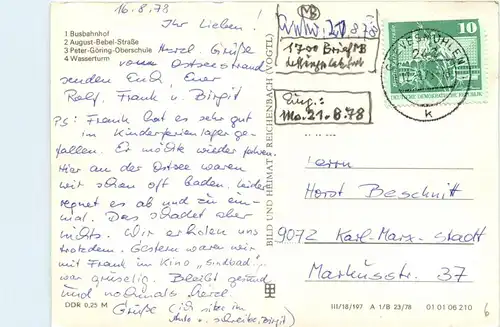 16.8.78
1 Busbahnhof
2 August-Bebel-Straße
3 Peter-Göring-Oberschule
4 Wasserturm
Ihr Lieben!
Herzl. Grüße
vom Ostseestrand
senden Euch, Euer
Rolf, Frank u. Birgit
PS: Frank hat es sehr gut
im Kinderferienlager ge-
fallen. Er möchte wieder fahren.
Hier an der Ostsee waren
wir schon oft baden. Leider
regnet es ab und zu ein-
mal. Das schadet aber
nichts. Wir erholen uns
trotzdem. Gestern waren wir
mit Frank im Kino "Sindbad",
war gruselig. Bleibt gesund
und nochmals herzl.
Grüße (ich sitze im
Auto u. schreibe, Birgit)
DDR 0,25 M
BILD UND HEIMAT REICHENBACH (VOGTL)
Antw. 21.8.78
1700 Brief MB
Eing.:
Mo. 21.8.78
10
DEUTSCHE DEMOKRATISCHE REPUBLIK
GREVESMÜHLEN
242
k
Horst Beschnitt
9072 Karl-Marx-Stadt
Markusstr. 37
III/18/197 A 1/B 23/78 01 01 06 210
6